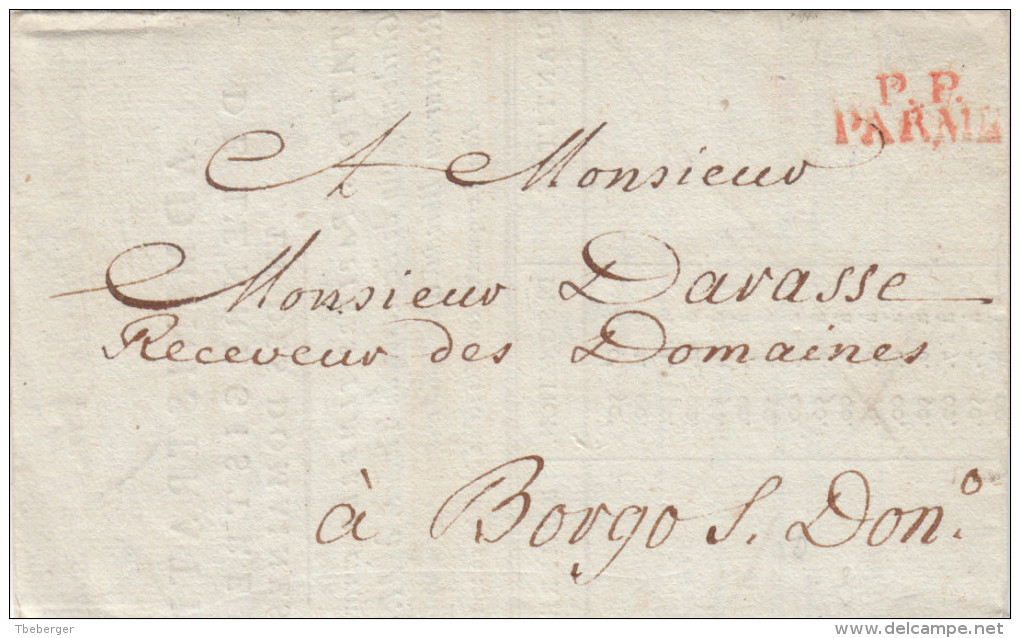 P. P.
PARME
A Monsieur
Monsieur Darasse
Receveur des Domaines
à Borgo S. Don.º
Tbeberger
www.delcampe.net